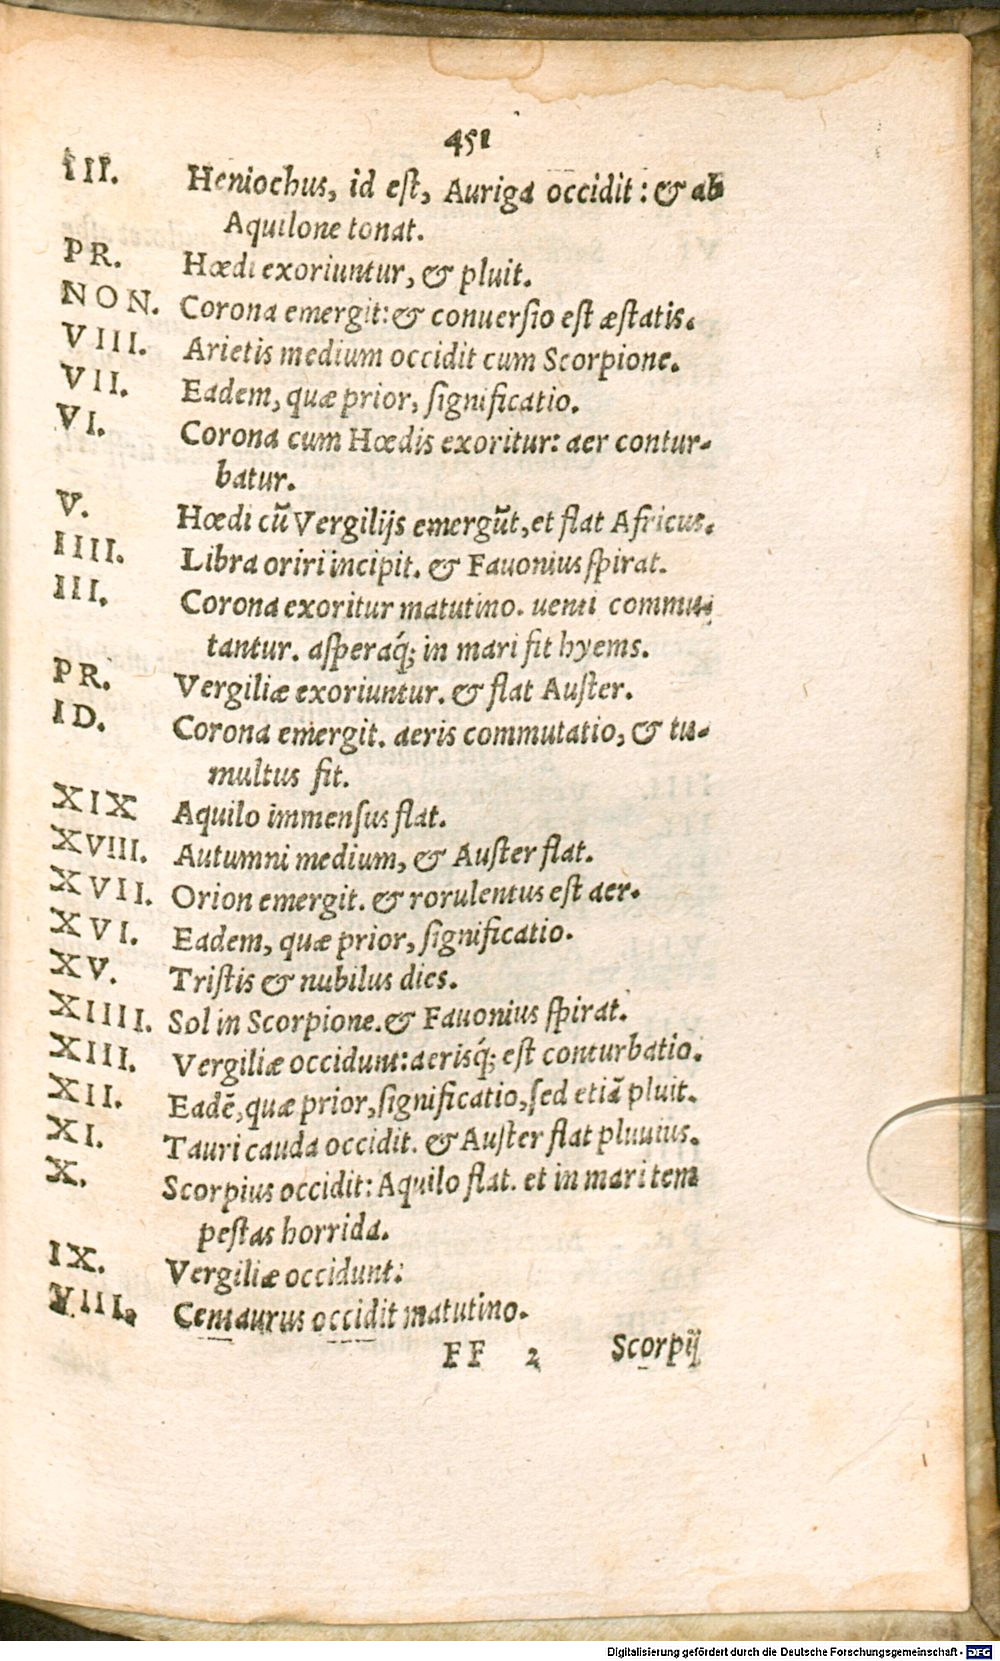 451
III. Heniochus, id eſt, Auriga occidit: & ab
Aquilone tonat.
PR. Hœdi exoriuntur, & pluit.
NON. Corona emergit: & conuerſio eſt æſtatis.
VIII. Arietis medium occidit cum Scorpione.
VII. Eadem, quæ prior, ſignificatio.
VI. Corona cum Hœdis exoritur: aer contur-
batur.
V. Hœdi cū Vergilijs emergūt, et flat Africus.
IIII. Libra oriri incipit. & Fauonius ſpirat.
III. Corona exoritur matutino. uenti commu-
tantur. aſperaq́; in mari fit hyems.
PR. Vergiliæ exoriuntur. & flat Auſter.
ID. Corona emergit. aeris commutatio, & tu-
multus fit.
XIX Aquilo immenſus flat.
XVIII. Autumni medium, & Auſter flat.
XVII. Orion emergit. & rorulentus eſt aer.
XVI. Eadem, quæ prior, ſignificatio.
XV. Triſtis & nubilus dies.
XIIII. Sol in Scorpione. & Fauonius ſpirat.
XIII. Vergiliæ occidunt: aerisq́; eſt conturbatio.
XII. Eadē, quæ prior, ſignificatio, ſed etiā pluit.
XI. Tauri cauda occidit. & Auſter flat pluuius.
X. Scorpius occidit: Aquilo flat. et in mari tem
peſtas horrida.
IX. Vergiliæ occidunt:
VIII. Centaurus occidit matutino.
FF 2 Scorpij
Digitalisierung gefördert durch die Deutsche Forschungsgemeinschaft - DFG